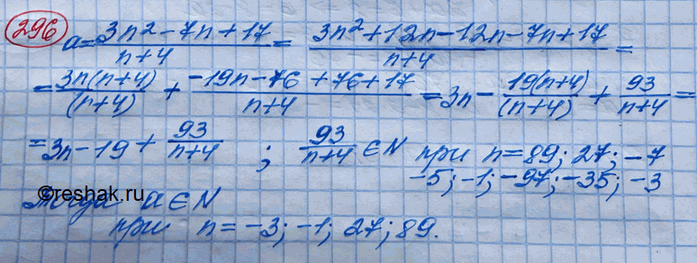 296
a = (3n² - 7n + 17)/(n+4) = (3n² + 12n - 12n - 7n + 17)/(n+4) =
= 3n(n+4)/(n+4) + (-19n - 76 + 76 + 17)/(n+4) = 3n - 19(n+4)/(n+4) + 93/(n+4) =
= 3n - 19 + 93/(n+4) ; 93/(n+4) ∈ N при n = 89; 27; -7
-5; -1; -97; -35; -3
©reshak.ru
Тогда a ∈ N
при n = -3; -1; 27; 89.